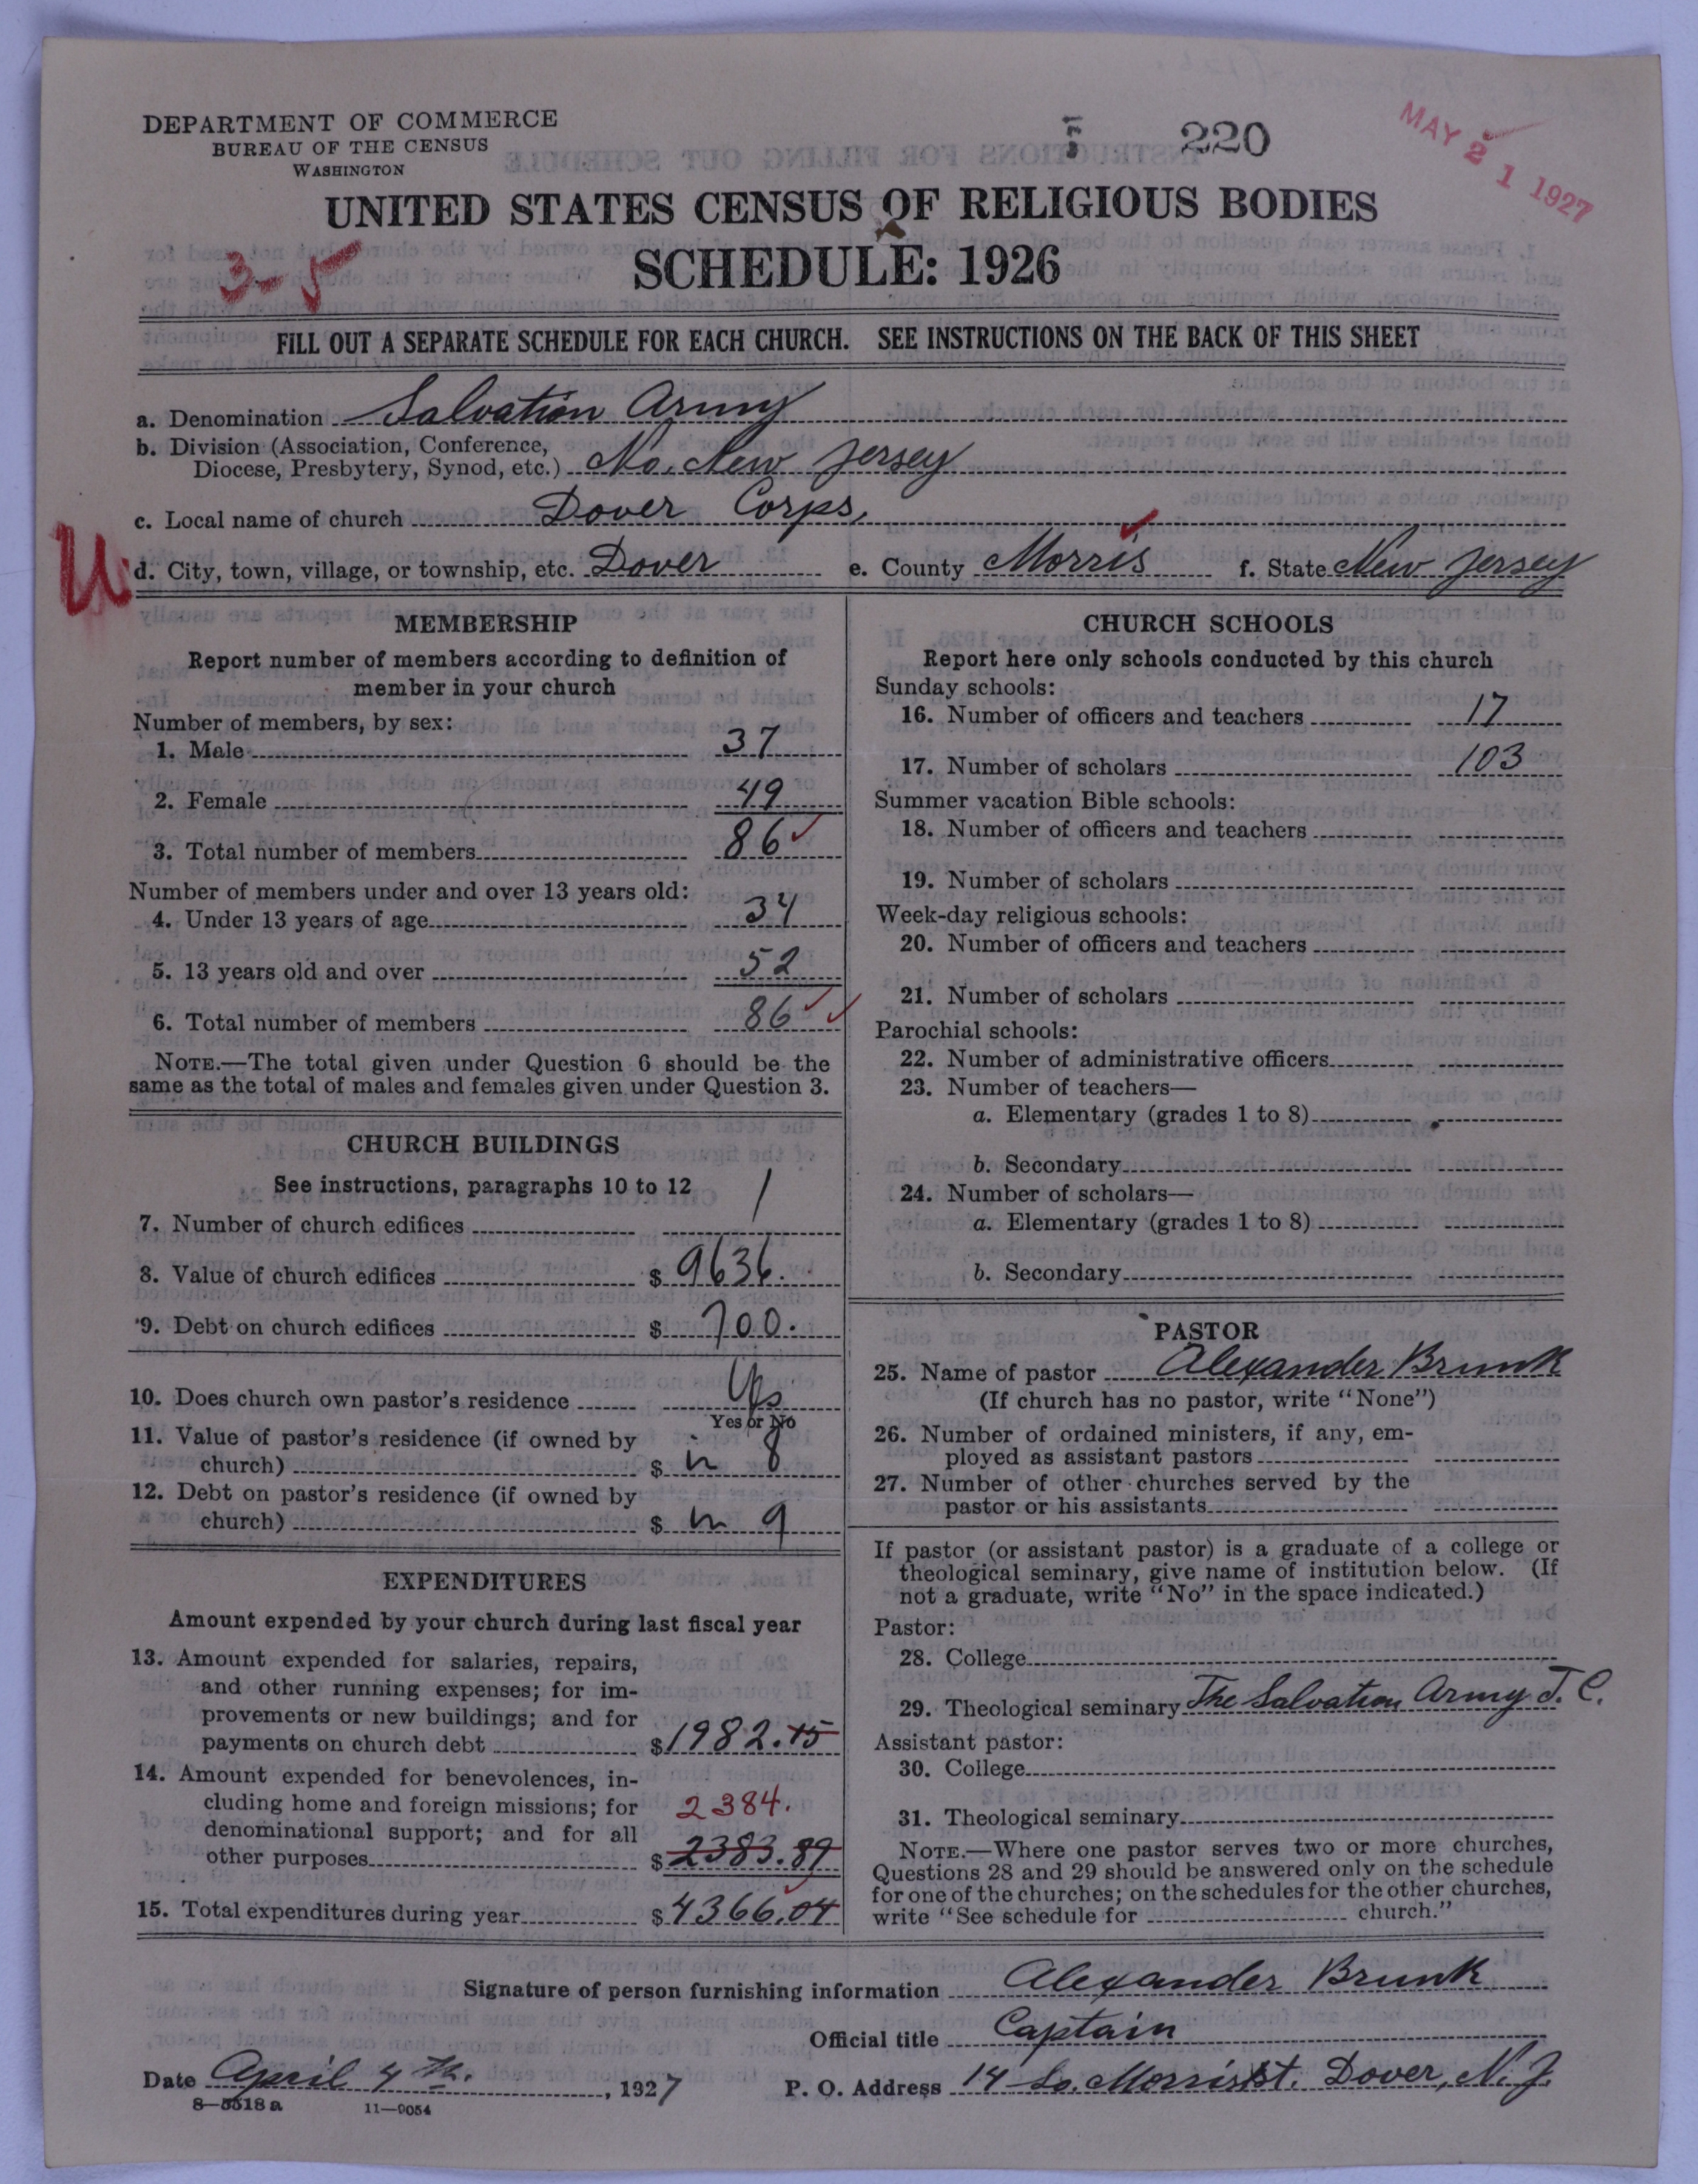 DEPARTMENT OF COMMERCE
BUREAU OF THE CENSUS
WASHINGTON
220
MAY 21 1927
UNITED STATES CENSUS OF RELIGIOUS BODIES
SCHEDULE: 1926
3-5
FILL OUT A SEPARATE SCHEDULE FOR EACH CHURCH. SEE INSTRUCTIONS ON THE BACK OF THIS SHEET
a. Denomination Salvation Army
b. Division (Association, Conference,
Diocese, Presbytery, Synod, etc.) No. New Jersey
c. Local name of church Dover Corps,
U
d. City, town, village, or township, etc. Dover e. County Morris f. State New Jersey
MEMBERSHIP
Report number of members according to definition of
member in your church
Number of members, by sex:
1. Male 37
2. Female 49
3. Total number of members 86
Number of members under and over 13 years old:
4. Under 13 years of age 34
5. 13 years old and over 52
6. Total number of members 86
NOTE.—The total given under Question 6 should be the
same as the total of males and females given under Question 3.
CHURCH BUILDINGS
See instructions, paragraphs 10 to 12
7. Number of church edifices 1
8. Value of church edifices $ 9636.
9. Debt on church edifices $ 700.
10. Does church own pastor's residence Yes
Yes or No
11. Value of pastor's residence (if owned by
church) $ in 8
12. Debt on pastor's residence (if owned by
church) $ in 9
EXPENDITURES
Amount expended by your church during last fiscal year
13. Amount expended for salaries, repairs,
and other running expenses; for im-
provements or new buildings; and for
payments on church debt $1982.15
14. Amount expended for benevolences, in-
cluding home and foreign missions; for 2384.
denominational support; and for all
other purposes $2383.89
15. Total expenditures during year $4366.04
CHURCH SCHOOLS
Report here only schools conducted by this church
Sunday schools:
16. Number of officers and teachers 17
17. Number of scholars 103
Summer vacation Bible schools:
18. Number of officers and teachers
19. Number of scholars
Week-day religious schools:
20. Number of officers and teachers
21. Number of scholars
Parochial schools:
22. Number of administrative officers
23. Number of teachers—
a. Elementary (grades 1 to 8)
b. Secondary
24. Number of scholars—
a. Elementary (grades 1 to 8)
b. Secondary
PASTOR
25. Name of pastor Alexander Brunk
(If church has no pastor, write "None")
26. Number of ordained ministers, if any, em-
ployed as assistant pastors
27. Number of other churches served by the
pastor or his assistants
If pastor (or assistant pastor) is a graduate of a college or
theological seminary, give name of institution below. (If
not a graduate, write "No" in the space indicated.)
Pastor:
28. College
29. Theological seminary The Salvation Army T. C.
Assistant pastor:
30. College
31. Theological seminary
NOTE.—Where one pastor serves two or more churches,
Questions 28 and 29 should be answered only on the schedule
for one of the churches; on the schedules for the other churches,
write "See schedule for church."
Signature of person furnishing information Alexander Brunk
Official title Captain
Date April 4th, 1927 P. O. Address 14 So. Morris St. Dover, N. J.
8—5518a 11—9054